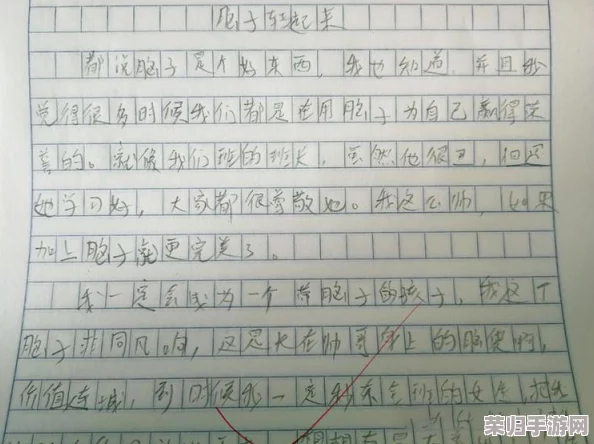 脑子转起来
都说脑子是个好东西，我也知道，并且我
觉得很多时候我们都是在用脑子为自己赢得荣
誉的。就像我们班的班长，虽然他很丑，但是
她学习好，大家都很尊敬她。我这么帅，如果
加上脑子就更完美了。
我一定会成为一个带脑子的孩子，我这个
脑子非同凡响，这是长在帅哥身上的脑袋啊，
价值连城，到时候我一定我来全班的女生
荣归手游网